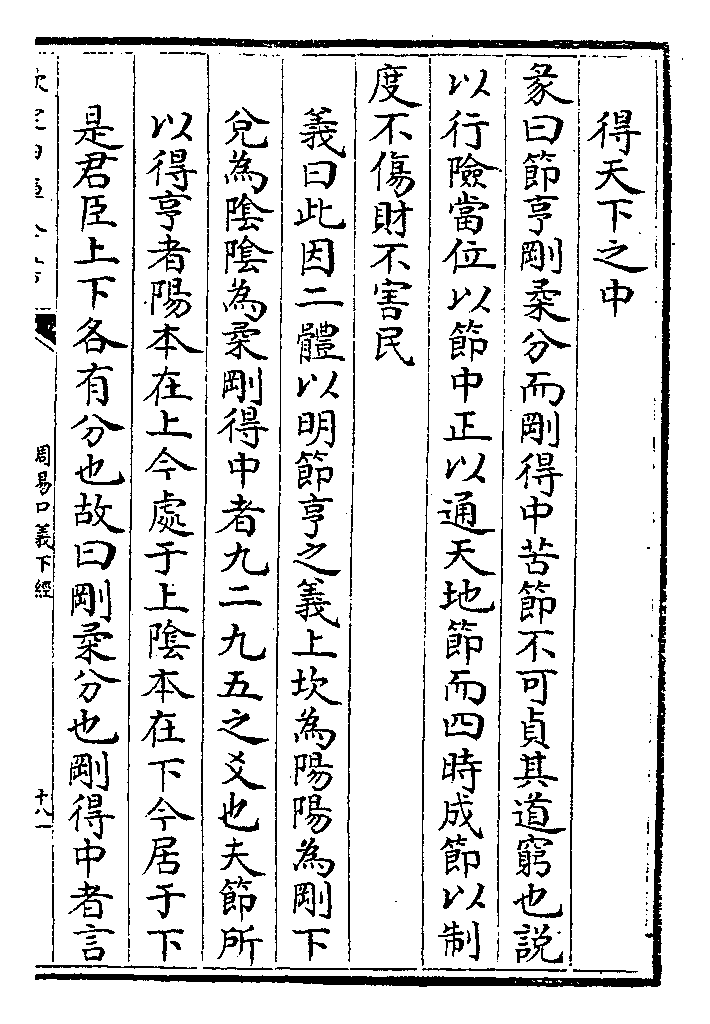 得天下之中
彖曰節亨剛柔分而剛得中苦節不可貞其道窮也説
以行險當位以節中正以通天地節而四時成節以制
度不傷財不害民
義曰此因二體以明節亨之義上坎為陽陽為剛下
兌為陰陰為柔剛得中者九二九五之爻也夫節所
以得亨者陽本在上今處于上陰本在下今居于下
是君臣上下各有分也故曰剛柔分也剛得中者言
周易口義下經